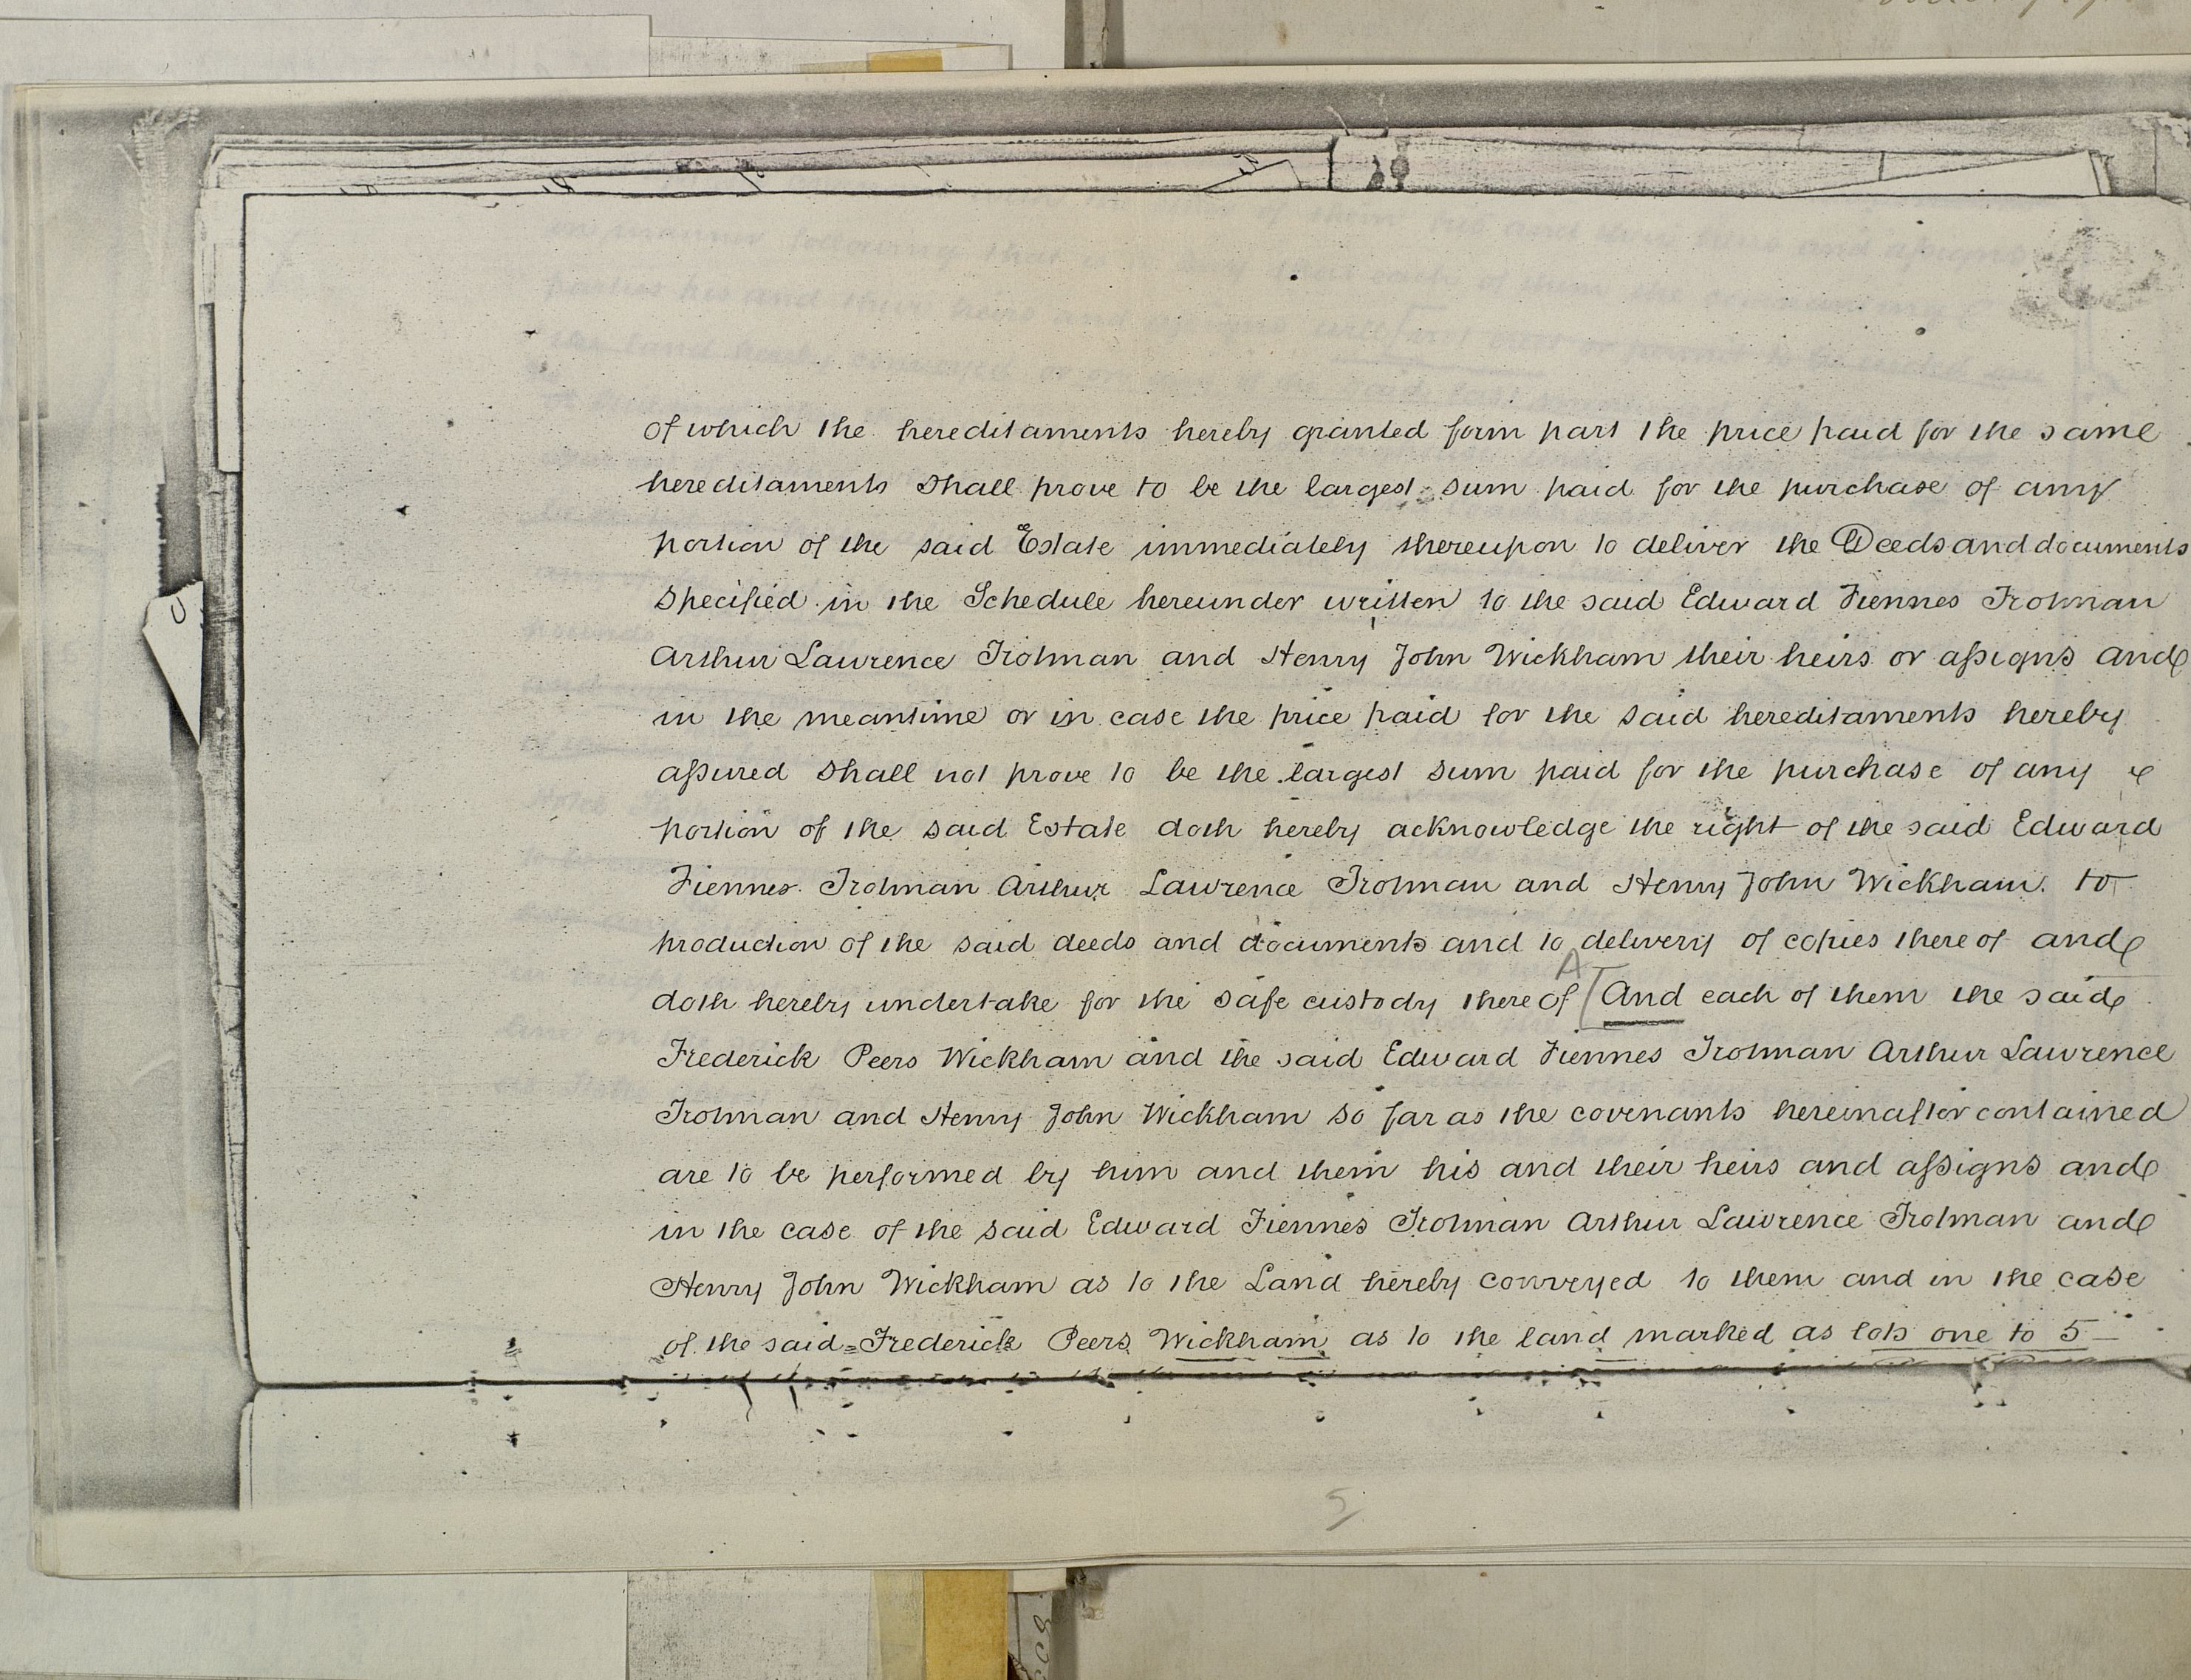 of which the hereditaments hereby granted form part the price paid for the same
hereditaments shall prove to be the largest sum paid for the purchase of any
portion of the said Estate immediately thereupon to deliver the Deeds and documents
specified in the Schedule hereunder written to the said Edward Fiennes Trotman
Arthur Lawrence Trotman and Henry John Wickham their heirs or assigns and
in the meantime or in case the price paid for the said hereditaments hereby
assured shall not prove to be the largest sum paid for the purchase of any
portion of the said Estate doth hereby acknowledge the right of the said Edward
Fiennes Trotman Arthur Lawrence Trotman and Henry John Wickham to
production of the said deeds and documents and to delivery of copies thereof and
A
doth hereby undertake for the safe custody thereof [And each of them the said
Frederick Peers Wickham and the said Edward Fiennes Trotman Arthur Lawrence
Trotman and Henry John Wickham so far as the covenants hereinafter contained
are to be performed by him and them his and their heirs and assigns and
in the case of the said Edward Fiennes Trotman Arthur Lawrence Trotman and
Henry John Wickham as to the Land hereby conveyed to them and in the case
of the said Frederick Peers Wickham as to the land marked as lots one to 5
5